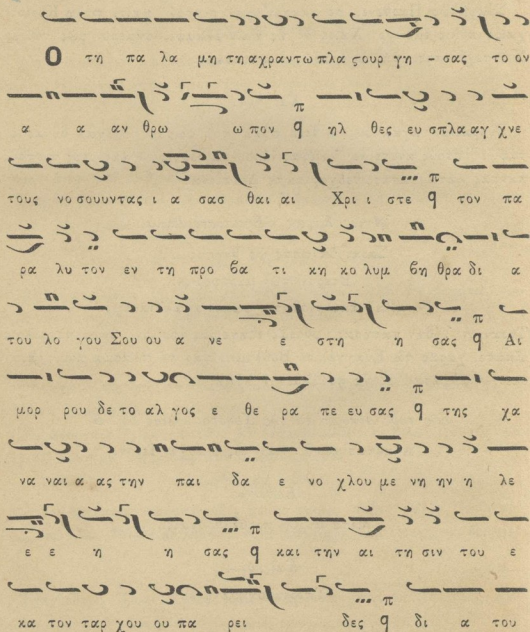 Ο τη πα λα μη τη αχραντω πλα ςουρ γη - σας το ον
α α αν θρω ω πον ηλ θες ευ σπλα αγ χνε
τους νο σουυντας ι α σασ θαι αι Χρι ι στε τον πα
ρα λυ τον εν τη προ βα τι κη κο λυμ βη θρα δι α
του λο γου Σου ου α νε ε στη η σας Αι
μορ ρου δε το αλ γος ε θε ρα πε ευ σας της χα
να ναι α ας την παι δα ε νο χλου με νη ην η λε
ε ε η η σας και την αι τη σιν του ε
κα τον ταρ χου ου πα ρει δες δι α του